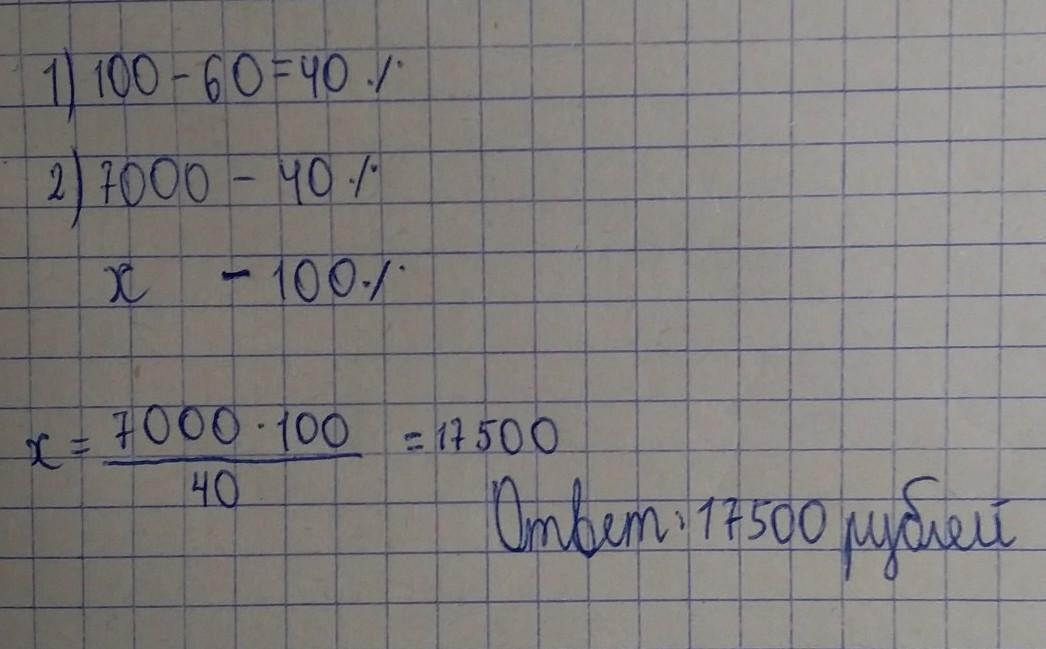 1) 100 - 60 = 40 %
2) 7000 - 40 %
x - 100 %
x = \frac{7000 \cdot 100}{40} = 17500
Ответ: 17500 рублей